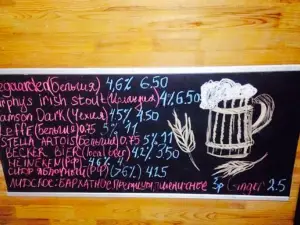 egaarden(Бельгия) 4,6% 6.50
urphys irish stout(Ирландия) 4% 6.50
amson Dark(Чехия) 4.5% 4.50
Leffe(Бельгия) 0.75 5% 11
STELLA ARTOIS(Бельгия) 0.75 5% 11
BECKER BIER(local beer) 4.2% 3.50
EINEKEN(РФ) 4.6% 4
СИДР ЯБЛОЧНЫЙ(РФ) 4.2.5
ЛИДСКОЕ: БАРХАТНОЕ Премиум, пшеничное
Ginger 2.5